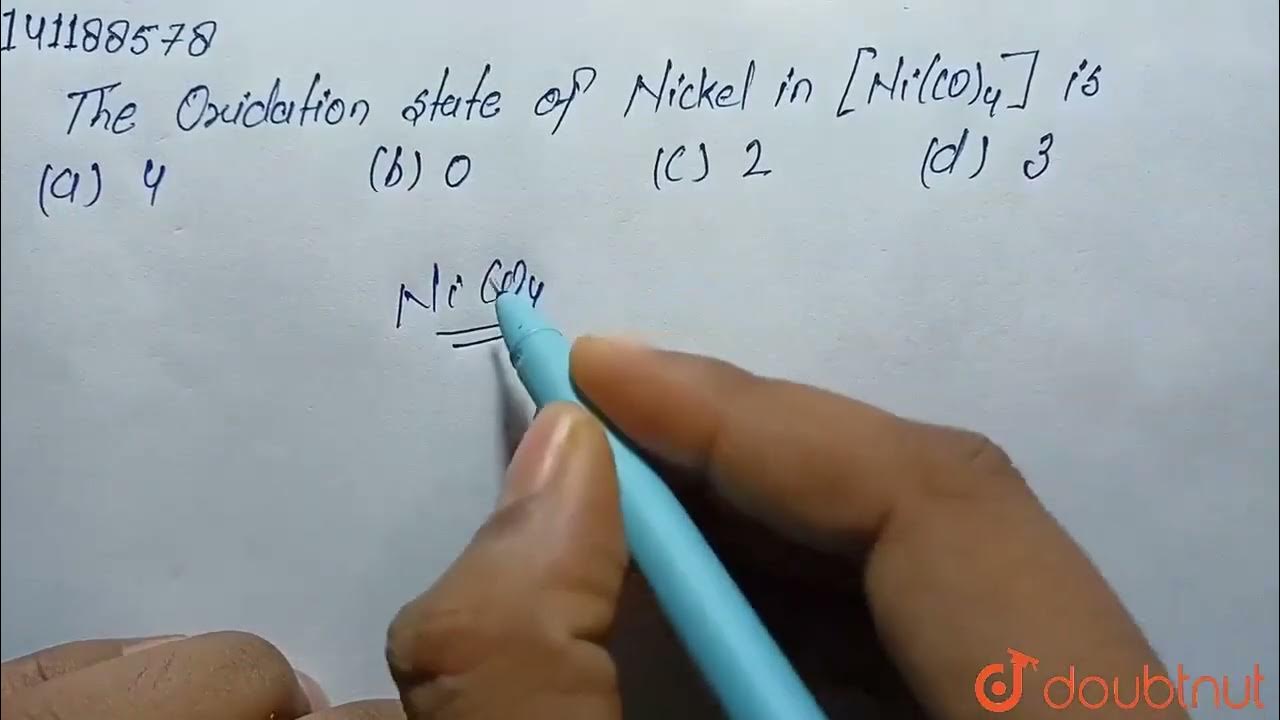 141188578
The Oxidation state of Nickel in [Ni(CO)4] is
(a) 4 (b) 0 (c) 2 (d) 3
Ni(CO)4
doubtnut